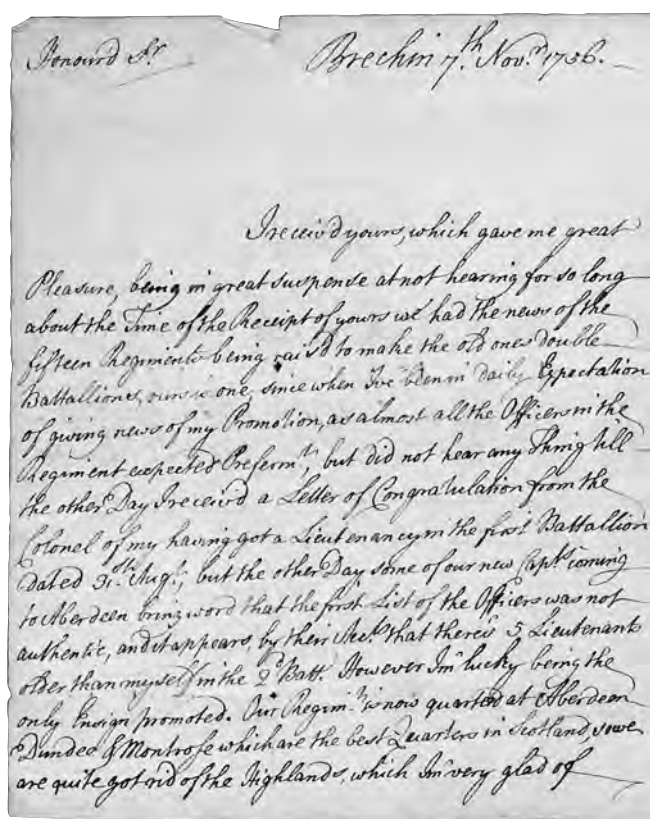 Honourd Sr. Brechin 7.th Novr. 1756.
I receiv'd yours, which gave me great
Pleasure, being in great suspense at not hearing for so long
about the Time of the Receipt of yours we had the news of the
fifteen Regiments being rais'd to make the old ones double
Battallions, ours is one, since when I've been in daily Expectation
of giving news of my Promotion, as almost all the Officers in the
Regiment expected Preferm.t, but did not hear any Thing till
the other Day I receiv'd a Letter of Congratulation from the
Colonel of my having got a Lieutenancy in the first Battallion
dated 31.st Aug.t, but the other Day some of our new Capts. coming
to Aberdeen bring word that the first List of the Officers was not
authentic, and it appears, by their Acc.ts that there's 5 Lieutenants
older than myself in the 2.d Batt. However I'm lucky being the
only Ensign promoted. Our Regim.t is now quarter'd at Aberdeen
Dundee & Montrose which are the best Quarters in Scotland, so we
are quite got rid of the Highlands, which I'm very glad of